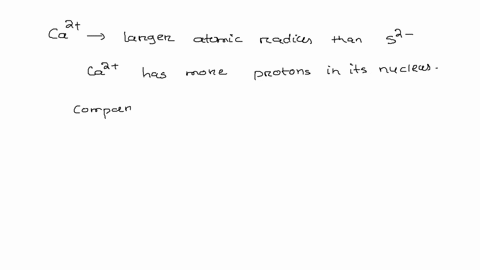 Ca²⁺ → larger atomic radius than S²⁻
Ca²⁺ has more protons in its nucleus.
Compar